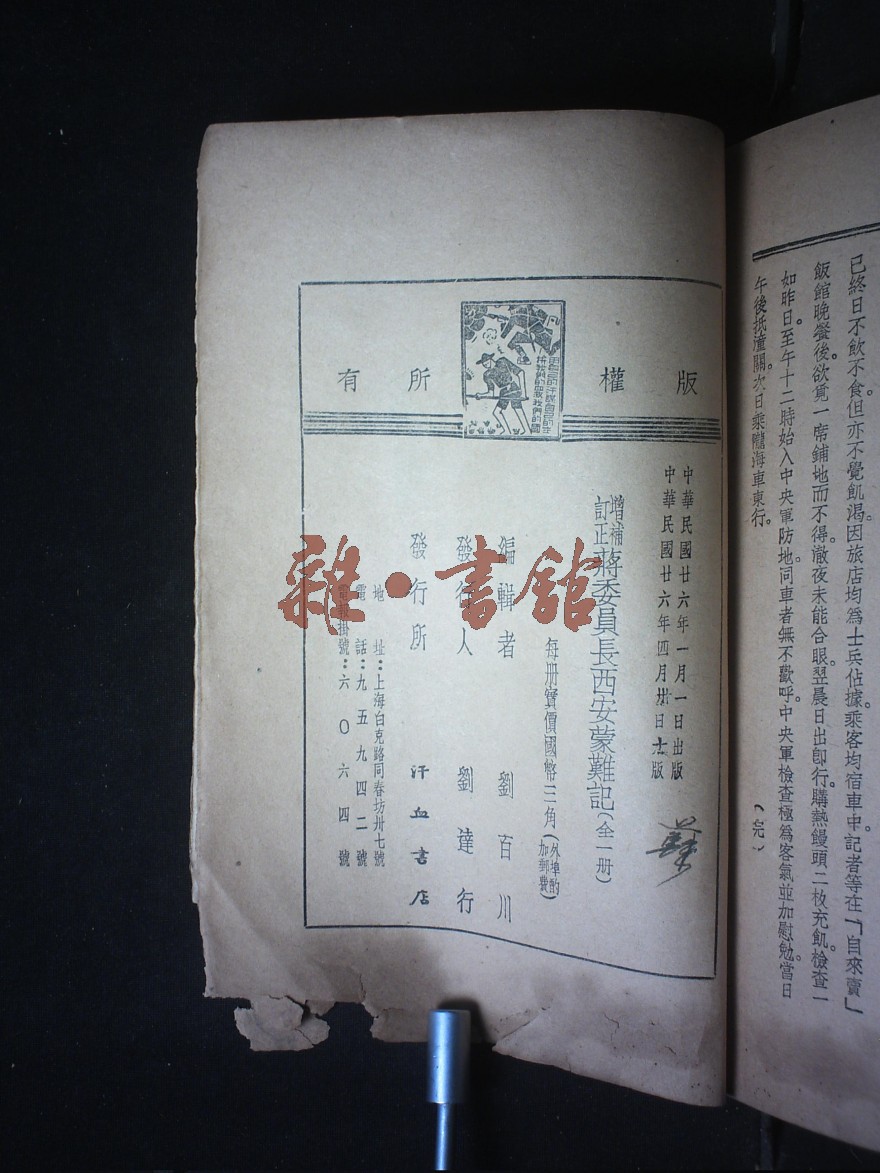 已終日不飲不食但亦不覺飢渴。因旅店均為士兵佔據。乘客均宿車中。記者等在「自來賣」
飯館晚餐後。欲覓一席鋪地而不得。徹夜未能合眼。翌晨日出卽行。購熱饅頭二枚充飢。檢查一
如昨日。至午十二時始入中央軍防地。同車者無不歡呼。中央軍檢查極為客氣。並加慰勉。當日
午後抵潼關。次日乘隴海車東行。
(完)
版權所有
中華民國廿六年一月一日出版
中華民國廿六年四月卅日十版
增補訂正蔣委員長西安蒙難記(全一册)
每册實價國幣三角(外埠酌加郵費)
編輯者 劉百川
發行人 劉達行
發行所 汗血書店
地址:上海白克路同春坊卅七號
電話:九五九四二號
電報掛號:六〇六四號
雜·書館